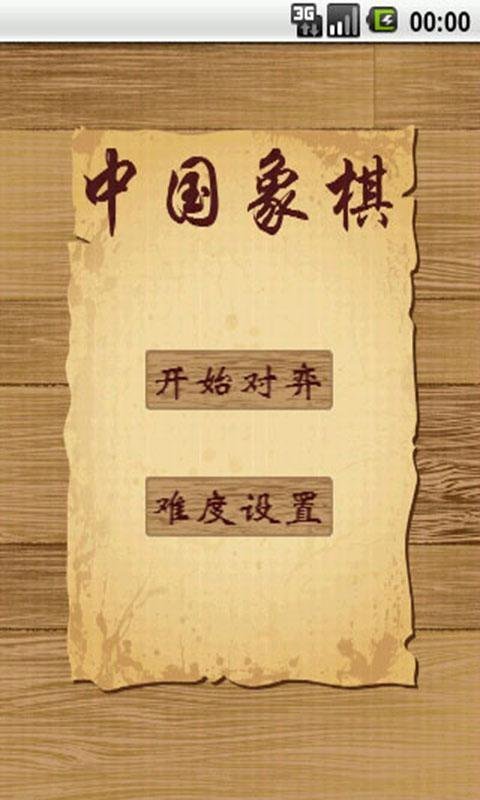 3G 00:00
中国象棋
开始对弈
难度设置